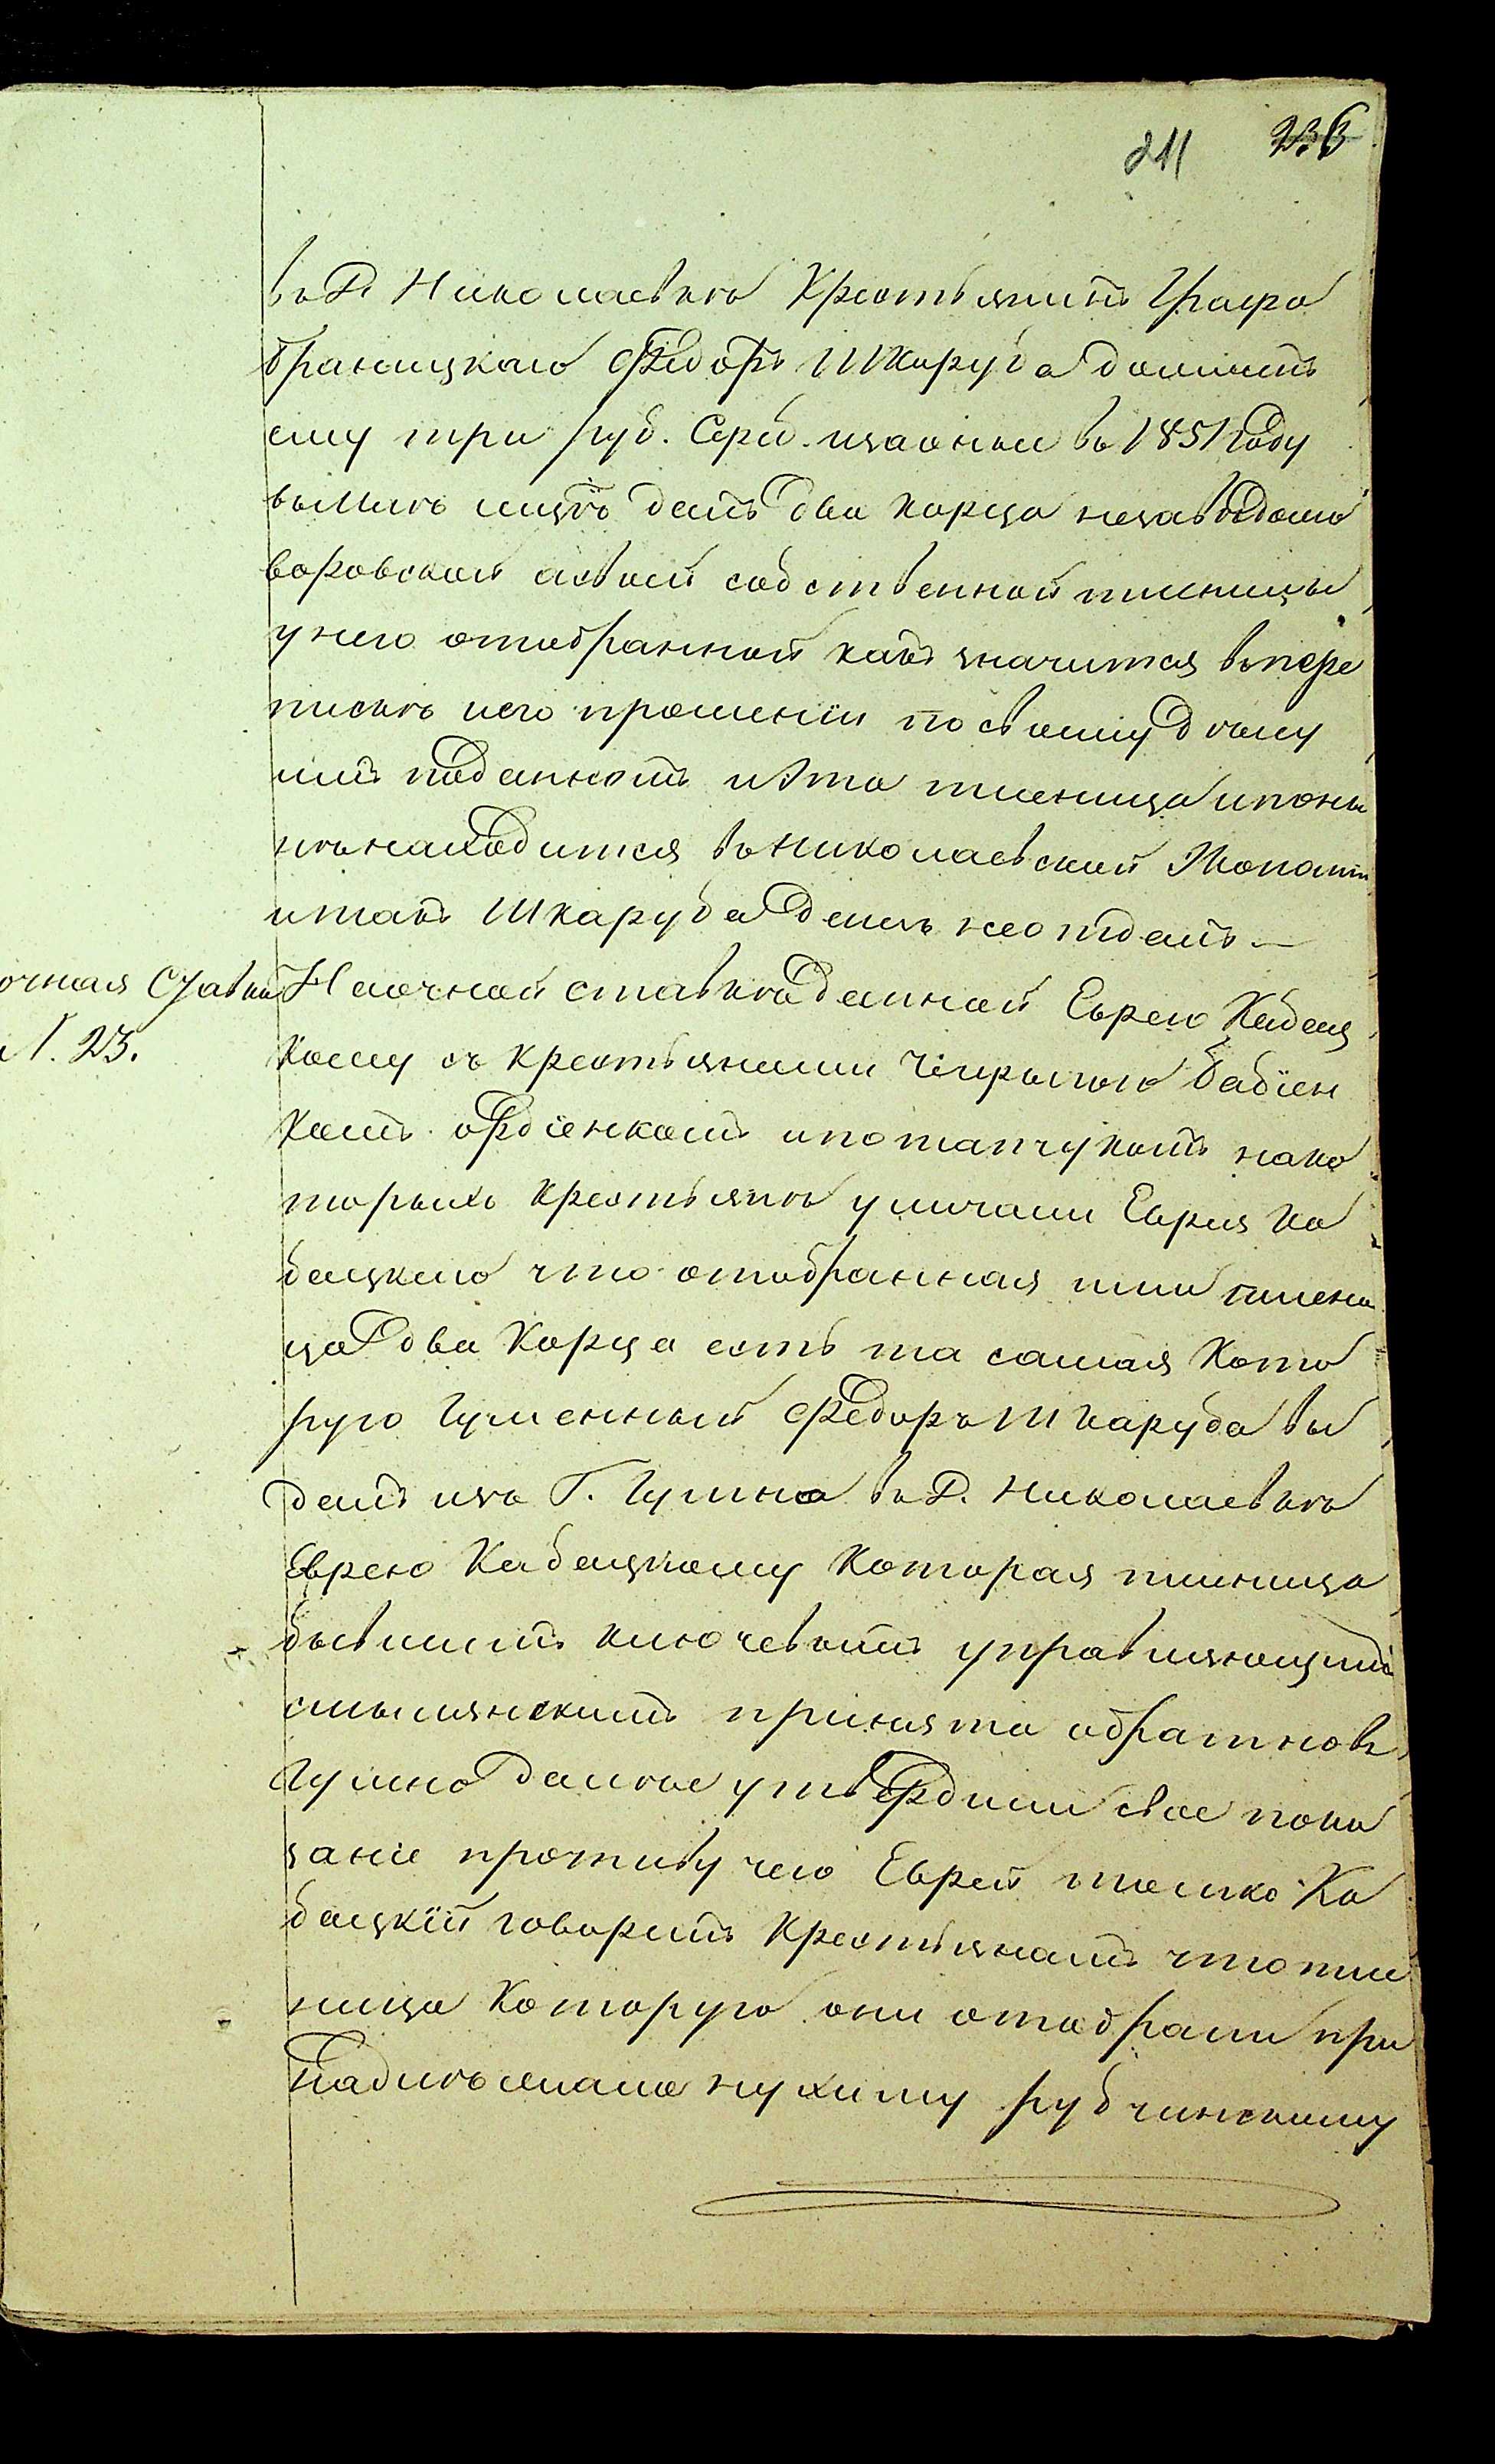 211 236
въ Д. Николаевке Крестьянинъ Графа
браницкаго Федоръ Шкаруба долженъ
ему три руб. Сереб. изаоныи въ 1851 Году
вместо денъ два корца незаводомо
воровской асвоей собственной пшеницы
унего отобранной какъ значится впере
пискѣ иего прошеніи посвоему
имъ поданномъ иэта пшеница ипоны
нѣ находится въ Николаевской Экономіи
итакъ Шкаруба денегъ неотдалъ —
очная Ставка
Л. 23.
На очной ставкѣ данной Еврею Кабац
кому съ крестьянами Чепрыгою бабіен
комъ ордіенкомъ ипотапчукомъ нако
торыхъ крестьянѣ уличали Еврея Ка
бацкаго что отобранная ими пшени
ца два Корца есть та самая Кото
рую Гуменный Федоръ Шкаруба вы
далъ изъ Г. Гумна въ Д. Николаевкѣ
Еврею Кабацкому Которая пшеница
бывшимъ ключевымъ управляющимъ
смылянскимъ принята обратновъ
Гумно далѣе утвердили свое пока
заніе противу чего Еврей тошко Ка
бацкій говоритъ Крестьянамъ что пше
ница Которую они отобрали при
надлѣжала нухиму рубчинскому